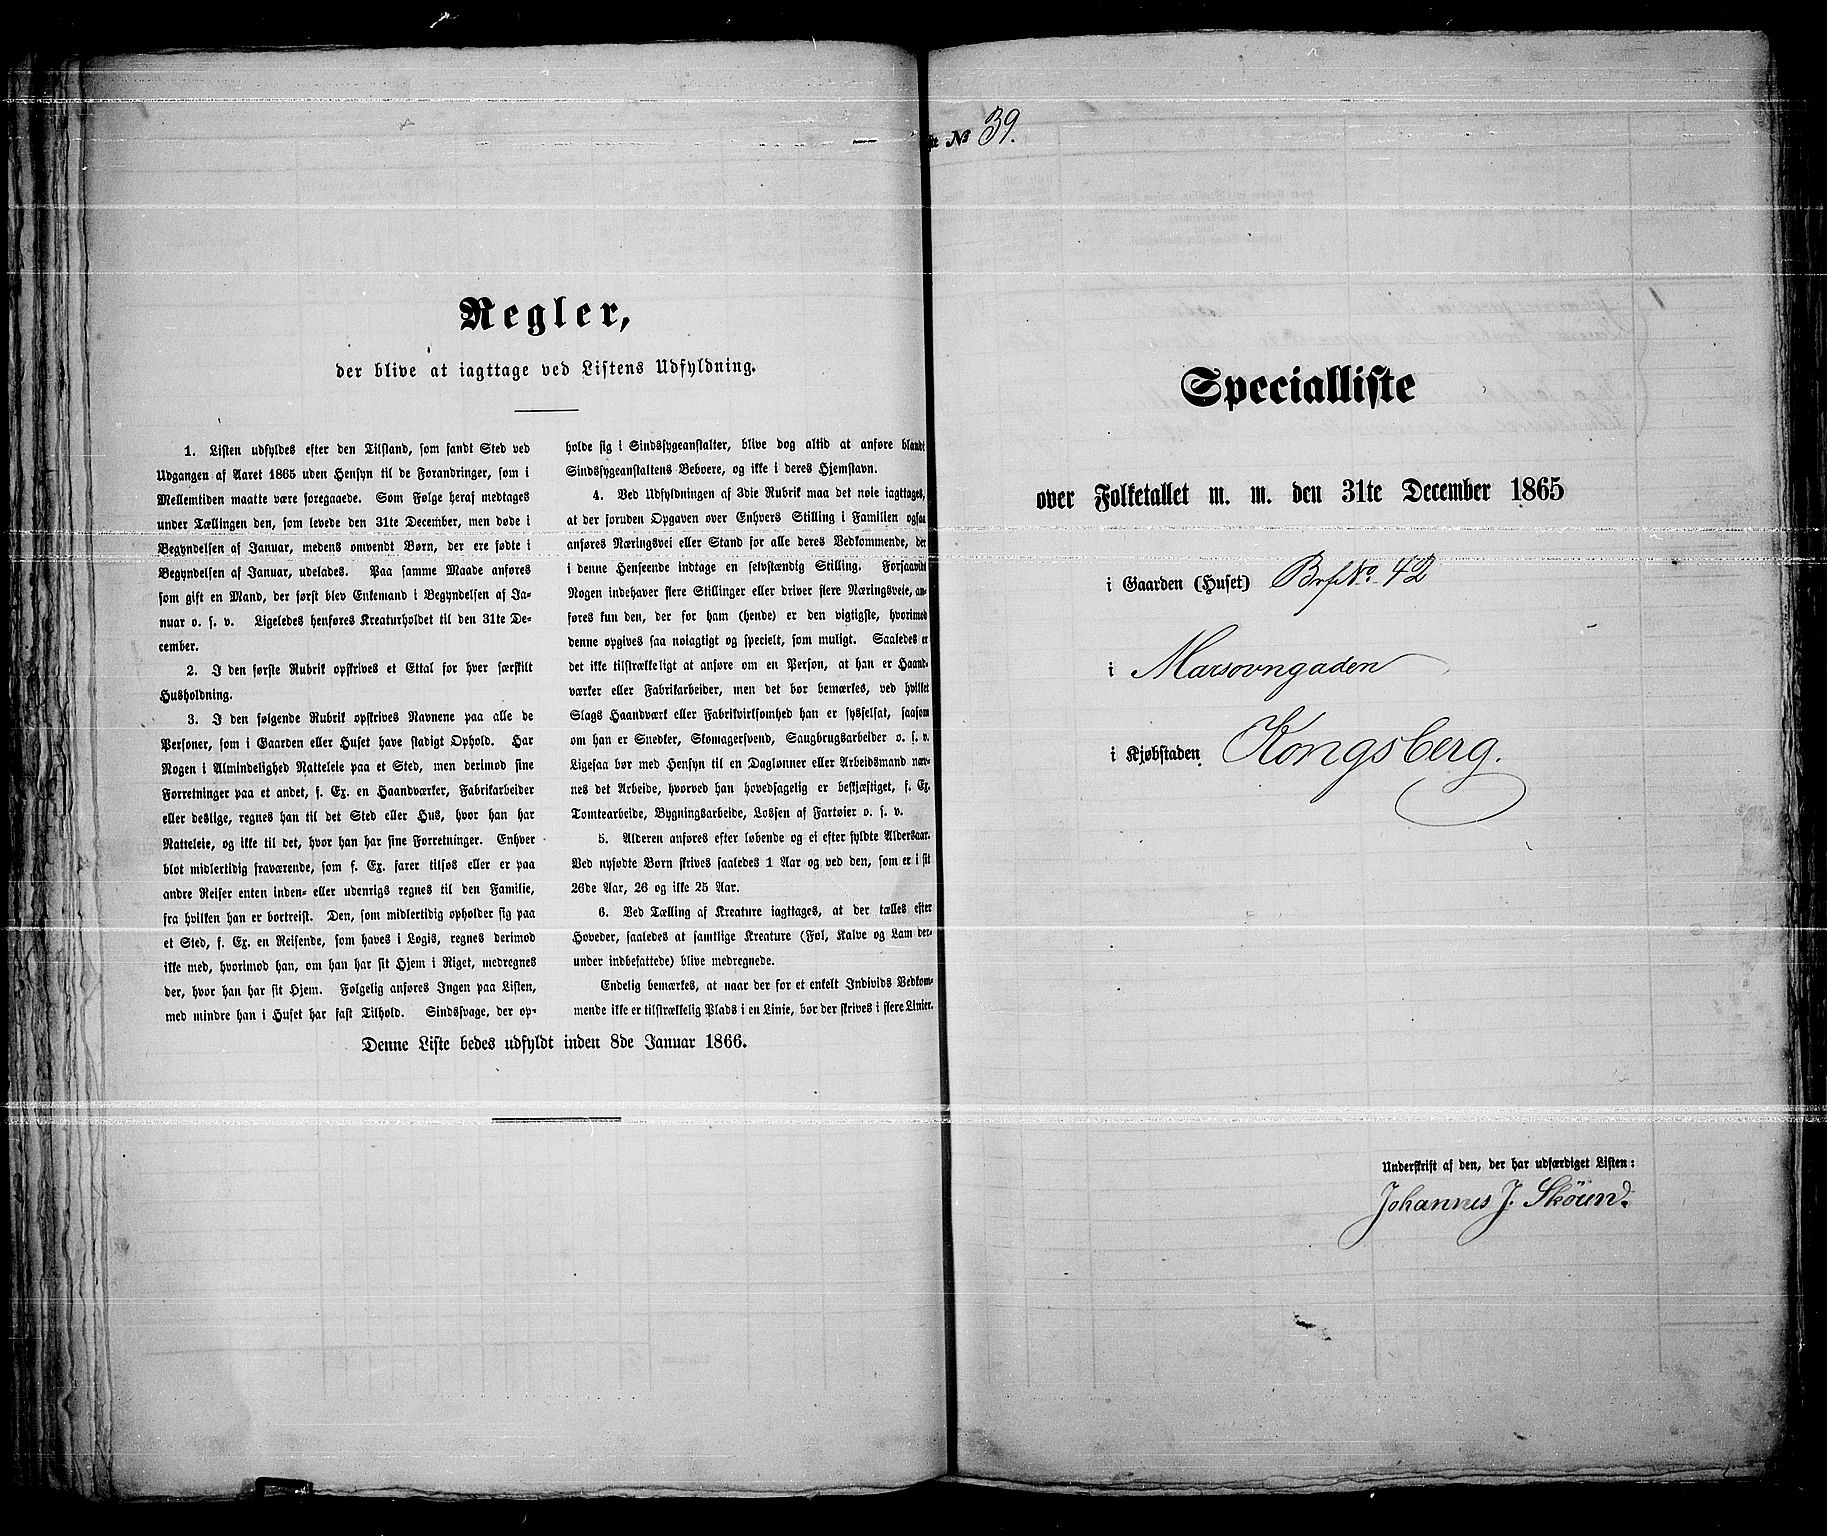 Regler,
der blive at iagttage ved Listens Udfyldning.
1. Listen udfyldes efter den Tilstand, som fandt Sted ved
Udgangen af Aaret 1865 uden Hensyn til de Forandringer, som i
Mellemtiden maatte være foregaaede. Som Følge heraf medtages
under Tællingen den, som levede den 31te December, men døde i
Begyndelsen af Januar, medens omvendt Børn, der ere fødte i
Begyndelsen af Januar, udelades. Paa samme Maade anføres
som gift en Mand, der først blev Enkemand i Begyndelsen af Ja-
nuar o. s. v. Ligeledes henføres Kreaturholdet til den 31te De-
cember.
2. I den første Rubrik opskrives et Ettal for hver særskilt
Husholdning.
3. I den følgende Rubrik opskrives Navnene paa alle de
Personer, som i Gaarden eller Huset have stadigt Ophold. Har
Nogen i Almindelighed Natteleie paa et Sted, men derimod sine
Forretninger paa et andet, f. Ex. en Haandværker, Fabrikarbeider
eller deslige, regnes han til det Sted eller Hus, hvor han har
Natteleie, og ikke til det, hvor han har sine Forretninger. Enhver
blot midlertidig fraværende, som f. Ex. farer tilsøs eller er paa
andre Reiser enten inden- eller udenrigs regnes til den Familie,
fra hvilken han er bortreist. Den, som midlertidig opholder sig paa
et Sted, f. Ex. en Reisende, som haves i Logis, regnes derimod
ikke med, hvorimod han, om han har sit Hjem i Riget, medregnes
der, hvor han har sit Hjem. Følgelig anføres Ingen paa Listen,
med mindre han i Huset har fast Tilhold. Sindssvage, der op-
holde sig i Sindssygeanstalter, blive dog altid at anføre blandt
Sindssygeanstaltens Beboere, og ikke i deres Hjemstavn.
4. Ved Udfyldningen af 3die Rubrik maa det nøie iagttages,
at der foruden Opgaven over Enhvers Stilling i Familien ogsaa
anføres Næringsvei eller Stand for alle deres Vedkommende, der
i denne Henseende indtage en selvstændig Stilling. Forsaavidt
Nogen indehaver flere Stillinger eller driver flere Næringsveie, an-
føres kun den, der for ham (hende) er den vigtigste, hvorimod
denne opgives saa nøiagtigt og specielt, som muligt. Saaledes er
det ikke tilstrækkeligt at anføre om en Person, at han er Haand-
værker eller Fabrikarbeider, men det bør bemærkes, ved hvilket
Slags Haandværk eller Fabrikvirksomhed han er sysselsat, saasom
om han er Snedker, Skomagersvend, Saugbrugsarbeider o. s. v.
Ligesaa bør med Hensyn til en Daglønner eller Arbeidsmand næv-
nes det Arbeide, hvorved han hovedsagelig er beskjæftiget, f. Ex.
Tomtearbeide, Bygningsarbeide, Lossen af Fartøier o. s. v.
5. Alderen anføres efter løbende og ei efter fyldte Aldersaar.
Ved nyfødte Børn skrives saaledes 1 Aar og ved den, som er i sit
26de Aar, 26 og ikke 25 Aar.
6. Ved Tælling af Kreature iagttages, at der tælles efter
Hoveder, saaledes at samtlige Kreature (Føl, Kalve og Lam der-
under indbefattede) blive medregnede.
Endelig bemærkes, at naar der for et enkelt Individs Vedkom-
mende ikke er tilstrækkelig Plads i en Linie, bør der skrives i flere Linier.
Denne Liste bedes udfyldt inden 8de Januar 1866.
№ 39.
Specialliste
over Folketallet m. m. den 31te December 1865
i Gaarden (Huset) Brf No. 42
i Marsovngaden
i Kjøbstaden Kongsberg.
Underskrift af den, der har udfærdiget Listen:
Johannes J. Skøien